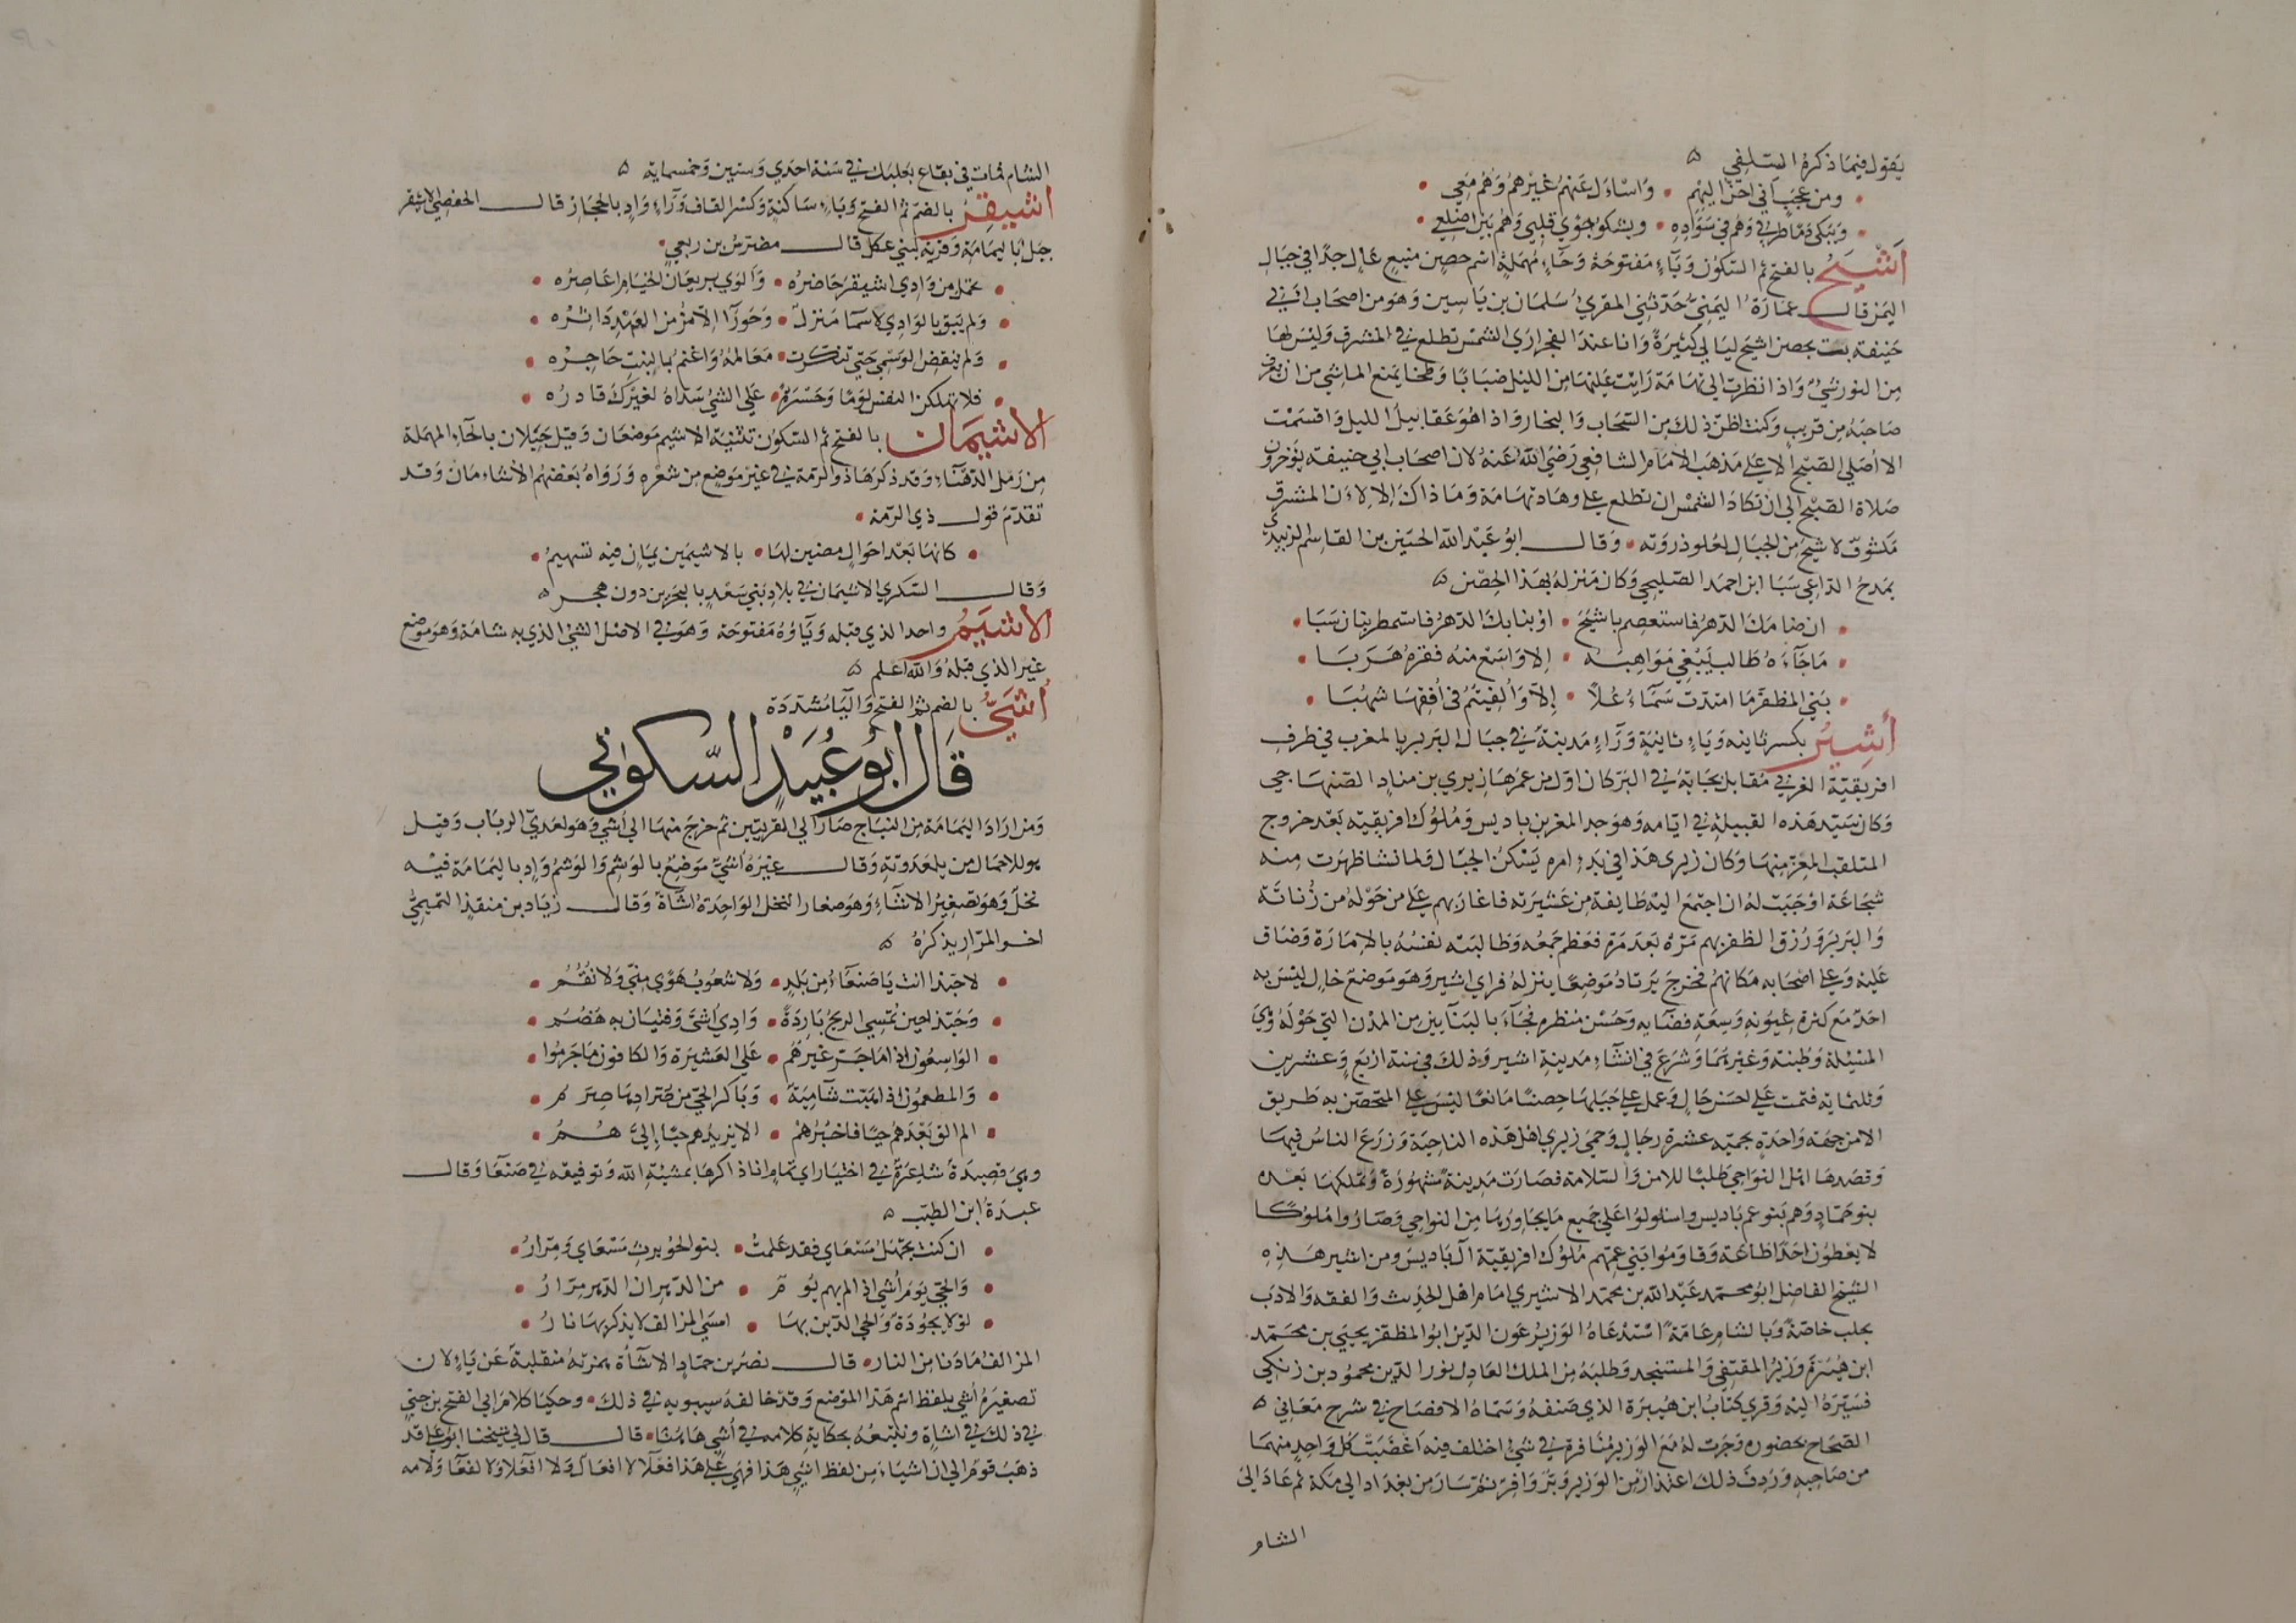 يقول فيما ذكره السلفي ه
ومن عجب اني احن اليهم • واسأل عنهم غيرهم وهم معي
وتبكي دما طرفي وهم في سواده • ويشكو جوي قلبي وهم بين اضلعي
أشيح بالفتح ثم السكون وياء مفتوحة وحاء مهملة اسم حصن منيع عال جدا في جبال
اليمن قال عمارة اليمني حدثني المقري سلمان بن ياسين وهو من اصحاب ابي
حنيفة بت بحصن اشيح ليالي كثيرة وانا عند الفجر اري الشمس تطلع في المشرق وليس لها
من النور شي واذا نظرت الي تهامة رايت عليها من الليل ضبابا وطخا يمنع الماشي من ان يعرف
صاحبه من قريب وكنت اظن ذلك من السحاب والبخار واذا هو عقابيل الليل واقسمت
الا أصلي الصبح الا علي مذهب الامام الشافعي رضي الله عنه لان اصحاب ابي حنيفة يؤخرون
صلاة الصبح الي ان تكاد الشمس ان تطلع علي وهاد تهامة وما ذاك الا لان المشرق
مكشوف لاشيح من الجبال لعلو ذروته • وقال ابو عبد الله الحسين بن القاسم الزبيدي
يمدح الداعي سبا ابن احمد الصليحي وكان منزله بهذا الحصن ه
ان ضامك الدهر فاستعصم باشيح • او بنا بك الدهر فاستمطر بنان سبا
ما جآءه طالب يبغي مواهبه • الا وازمع منه فقره هربا
بني المظفر ما امتدت سمآء علا • إلا والفيتم في أفقها شهبا
أشير بكسر ثانيه وياء ثانية وراء مدينة في جبال البربر بالمغرب في طرف
افريقية الغربي مقابل بجاية في البر كان اول من عمرها زيري بن مناد الصنهاجي
وكان سيد هذه القبيلة في ايامه وهو جد المعز بن باديس وملوك افريقية بعد خروج
المتلقب المعز منها وكان زيري هذا في بدء امره يسكن الجبال ولما نشا ظهرت منه
شجاعة اوجبت له ان اجتمع اليه طايفة من عشيرته فاغار بهم علي من حوله من زناتة
والبربر ورزق الظفر بهم مرة بعد مرة فعظم جمعه وطالبته نفسه بالامارة وضاق
عليه وعلي اصحابه مكانهم فخرج يرتاد موضعا ينزله فراي اشير وهو موضع خال ليس به
احد مع كثرة عيونه وسعة فضايه وحسن منظره فجاء بالبنايين من المدن التي حوله وهي
المسيلة وطبنة وغيرهما وشرع في انشاء مدينة اشير وذلك في سنة اربع وعشرين
وثلثماية فتمت علي احسن حال وعمل علي جبلها حصنا مانعا ليس علي المتحصن به طريق
الا من جهة واحدة يحميه عشرة رجال وحمي زيري اهل هذه الناحية وزرع الناس فيها
وقصدها اهل النواحي طلبا للامن والسلامة فصارت مدينة مشهورة وتملكها بعده
بنو حماد وهم بنو عم باديس واستولوا علي جميع ما يجاورها من النواحي وصاروا ملوكا
لا يعطون احدا طاعة وقاوموا بني عمهم ملوك افريقية آل باديس ومن اشير هذه
الشيخ الفاضل ابو محمد عبد الله بن محمد الاشيري امام اهل الحديث والفقه والادب
بحلب خاصة وبالشام عامة استدعاه الوزير عون الدين ابو المظفر يحيي بن محمد
ابن هبيرة وزير المقتفي والمستنجد وطلبه من الملك العادل نور الدين محمود بن زنكي
فسيره اليه وقري كتاب ابن هبيرة الذي صنفه وسماه الافصاح في شرح معاني ه
الصحاح بحضوره وجرت له مع الوزير منافرة في شي اختلف فيه اغضبت كل واحد منهما
من صاحبه وردف ذلك اعتذار من الوزير وبر وافر ثم سار من بغداد الي مكة ثم عاد الي
الشام
الشام فمات في بقاع بعلبك في سنة احدي وستين وخمسماية ه
أشيقر بالضم ثم الفتح وياء ساكنة وكسر القاف وراء واد بالحجاز قال الحفصي الاشيقر
جبل باليمامة وقرية لبني عكل قال مضرس بن ربعي
تحمل من وادي اشيقر حاضره • والوي بريعان الخيام اعاصره
ولم يبق بالوادي لاسما منزل • وحورا الا مزمن العهد داثره
ولم ينقض الوسمي حتي تنكرت • معالمه واعتم بالنبت حاجره
فلا تهلكن النفس لوما وحسرة • علي الشي سداه لغيرك قادره
الأشيمان بالفتح ثم السكون تثنية الاشيم موضعان وقيل حبلان بالحاء المهملة
من رمل الدهناء وقد ذكرها ذو الرمة في غير موضع من شعره ورواه بعضهم الأشاءمان وقد
تقدم قول ذي الرمة
كانها بعد احوال مضين لها • بالاشيمين يمان فيه تسهيم
وقال السكري الاشيمان في بلاد بني سعد بالبحرين دون هجر ه
الأشيم واحد الذي قبله وياؤه مفتوحة وهو في الاصل الشي الذي به شامة وهو موضع
غير الذي قبله والله اعلم ه
أشي بالضم ثم الفتح واليا مشددة
قال ابو عبيد السكوني
ومن اراد اليمامة من النباج صار الي القريتين ثم خرج منها الي أشي وهو لعدي الرباب وقيل
هو للاحمال من بلعدوية وقال غيره أشي موضع بالوشم والوشم واد باليمامة فيه
نخل وهو تصغير الأشآء وهو صغار النخل الواحدة اشاة وقال زياد بن منقذ التميمي
اخو المرار يذكره ه
لا حبذا انت يا صنعآء من بلد • ولا شعوب هوي مني ولا نقم
وحبذا حين تمسي الريح باردة • وادي اشي وفتيان به هضم
الواسعون اذا ما جر غيرهم • علي العشيرة والكافون ما جرموا
والمطعمون اذا هبت شآمية • وباكر الحي من صرادها صرم
لم الق بعدهم حيا فاخبرهم • الا يزيدهم حبا إلي هم
وهي قصيدة شاعرة في اختيار ابي تمام انا ذاكرها بمشئية الله وتوفيقه في صنعا وقال
عبدة ابن الطيب ه
ان كنت تجهل مسعاي فقد علمت • بنو الحويرث مسعاي ومرار
والحي يوم أشي اذ الم بهم يوم • من الدهر ان الدهر مرار
لولا يجودة والحي الذين بها • امسي المزالف لا يذكو بها نار
المزالف ما دنا من النار • قال نصر بن حماد الأشآة همزته منقلبة عن ياء لان
تصغيره أشي بلفظ اسم هذا الموضع وقد خالفه سيبويه في ذلك • وحكينا كلام ابي الفتح بن جني
في ذلك في اشاة ونتبعه بحكاية كلامه في أشي هاهنا • قال قال لي شيخنا ابو علي قد
ذهب قوم الي ان اشياء من لفظ اشي هذا فهي علي هذا فعلآ لا افعال ولا افعلا ولا لفعا ولامه